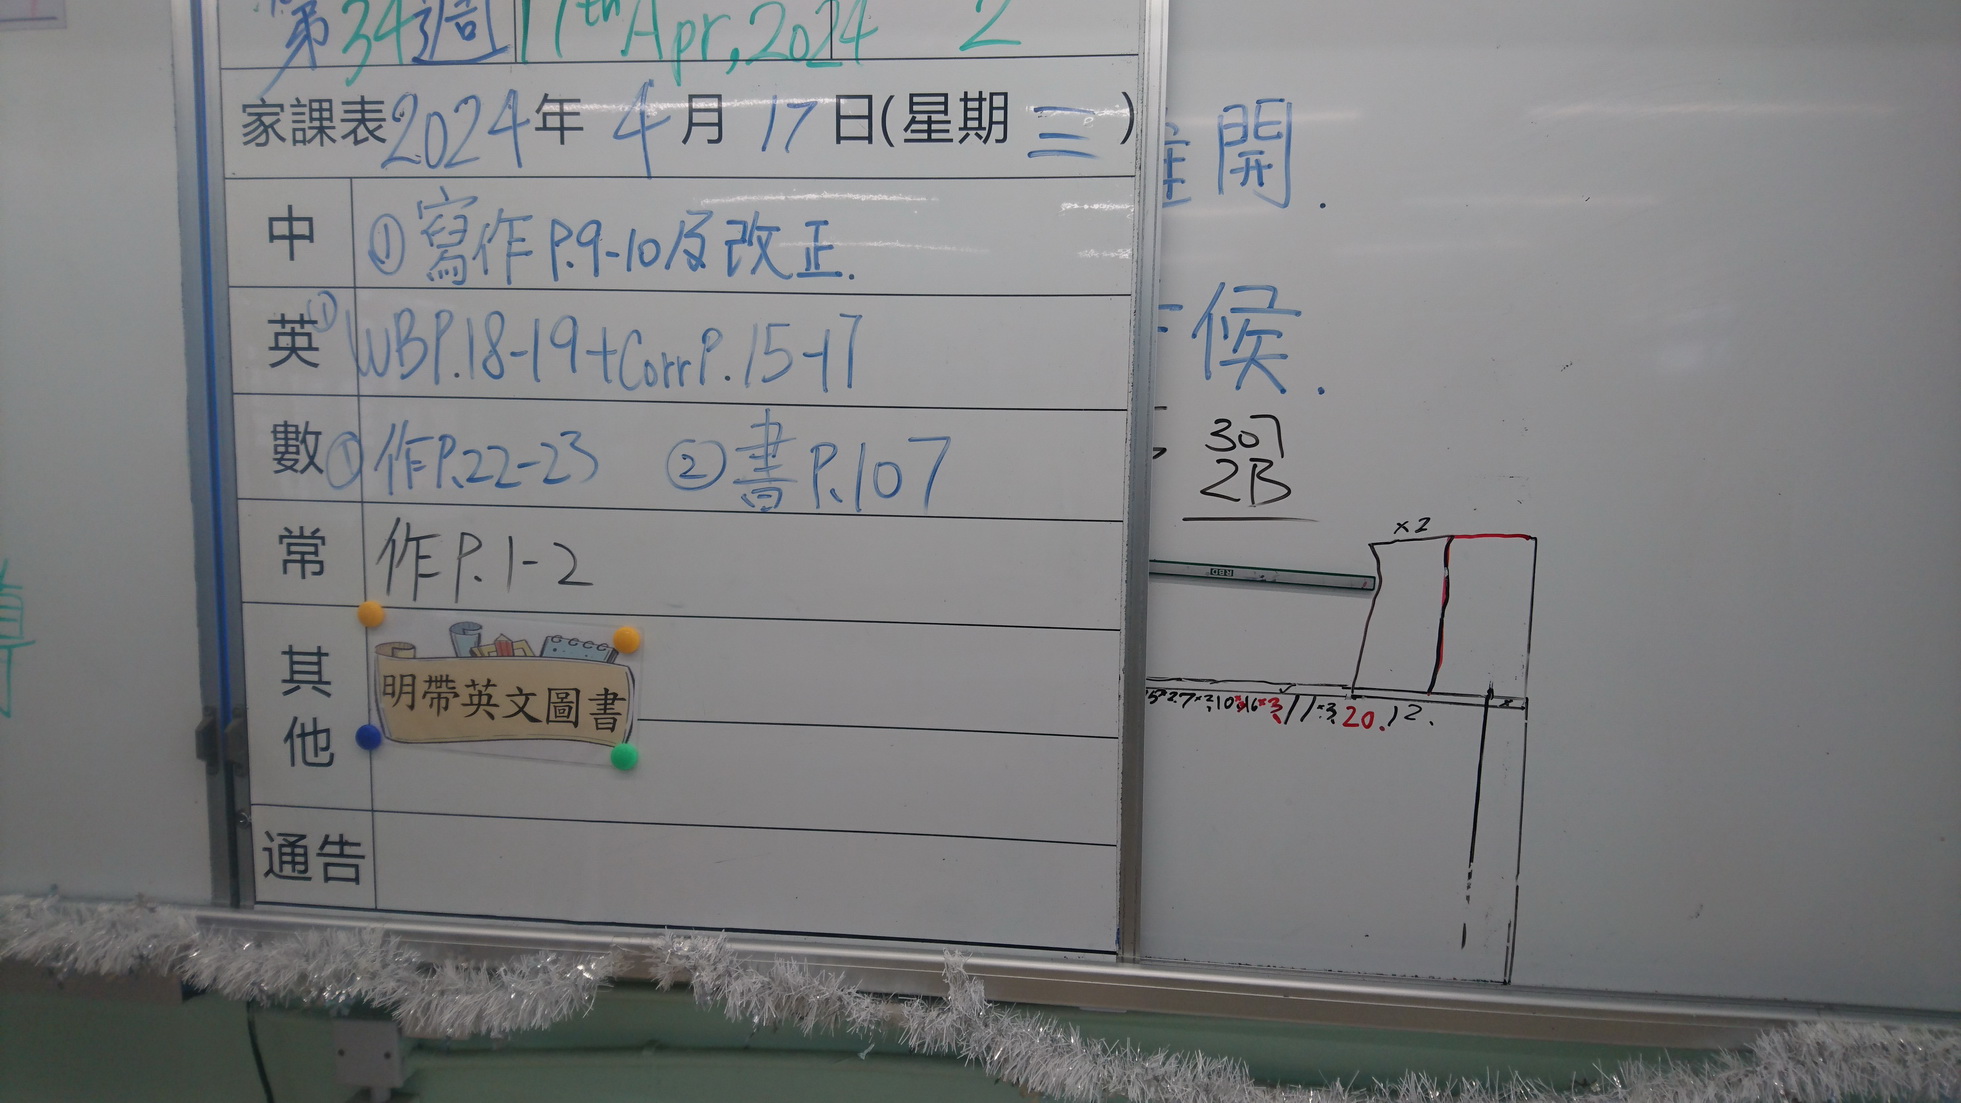 第34週 17th Apr, 2024 2
家課表 2024年 4月 17日(星期三)
中 ①寫作 P.9-10及改正.
英 ① WB P.18-19+Corr P.15-17
數 ① 作 P.22-23 ② 書 P.107
常 作 P.1-2
其他
明帶英文圖書
通告
開.
候.
307
2B
x2
RBD
20. 12.